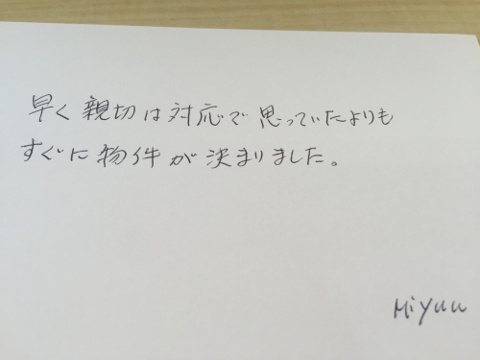 早く親切は対応で思っていたよりも
すぐに物件が決まりました。
Miyuu